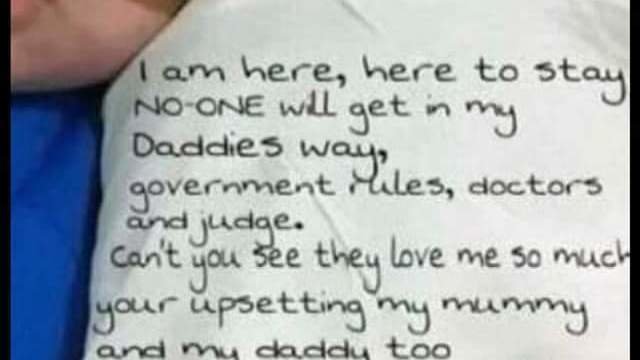 I am here, here to stay
NO-ONE will get in my
Daddies way,
government rules, doctors
and judge.
Can't you see they love me so much
your upsetting my mummy
and my daddy too